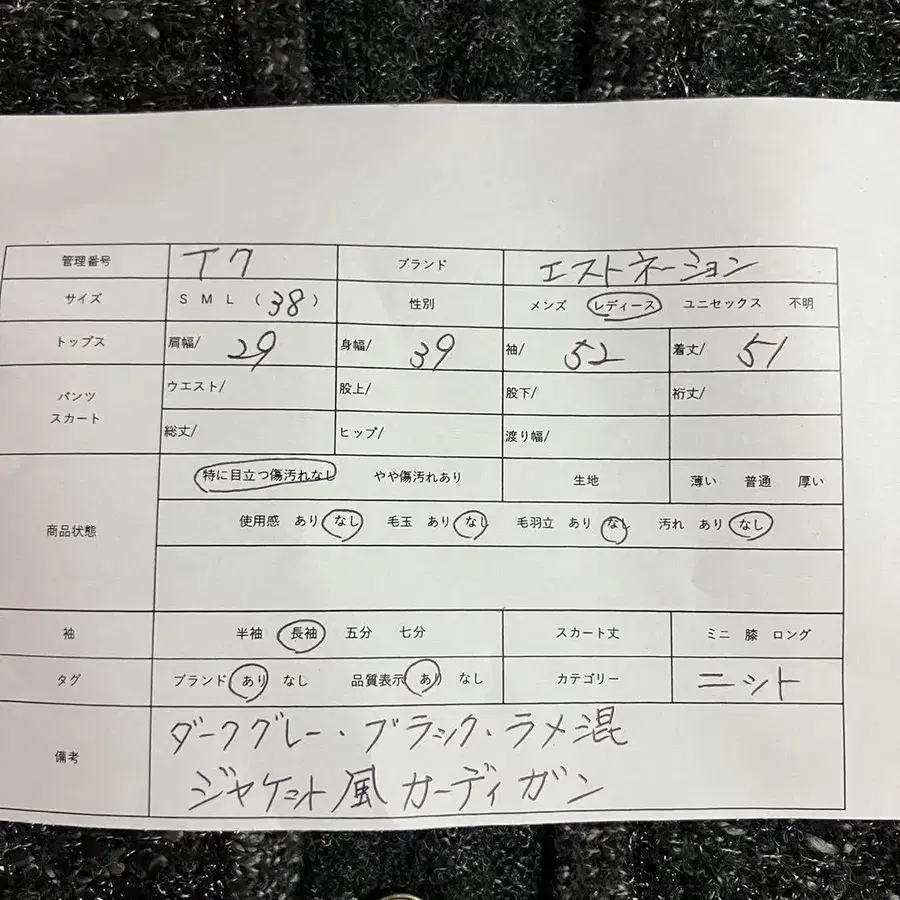 管理番号 イク ブランド エストネーション
サイズ S M L ( 38 ) 性別 メンズ レディース ユニセックス 不明
トップス 肩幅/ 29 身幅/ 39 袖/ 52 着丈/ 51
パンツ スカート ウエスト/ 股上/ 股下/ 裄丈/
総丈/ ヒップ/ 渡り幅/
商品状態 特に目立つ傷汚れなし やや傷汚れあり 生地 薄い 普通 厚い
使用感 あり なし 毛玉 あり なし 毛羽立 あり なし 汚れ あり なし
袖 半袖 長袖 五分 七分 スカート丈 ミニ 膝 ロング
タグ ブランド あり なし 品質表示 あり なし カテゴリー ニット
備考 ダークグレー・ブラック・ラメ混
ジャケット風カーディガン